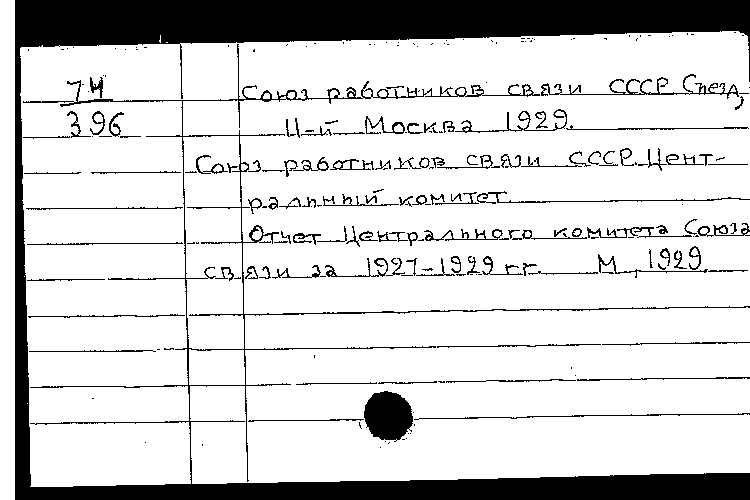 7Ч
396
Союз работников связи СССР. Съезд,
II-й Москва 1929.
Союз работников связи СССР. Цент-
ральный комитет.
Отчет Центрального комитета Союза
связи за 1927-1929 гг. М., 1929.